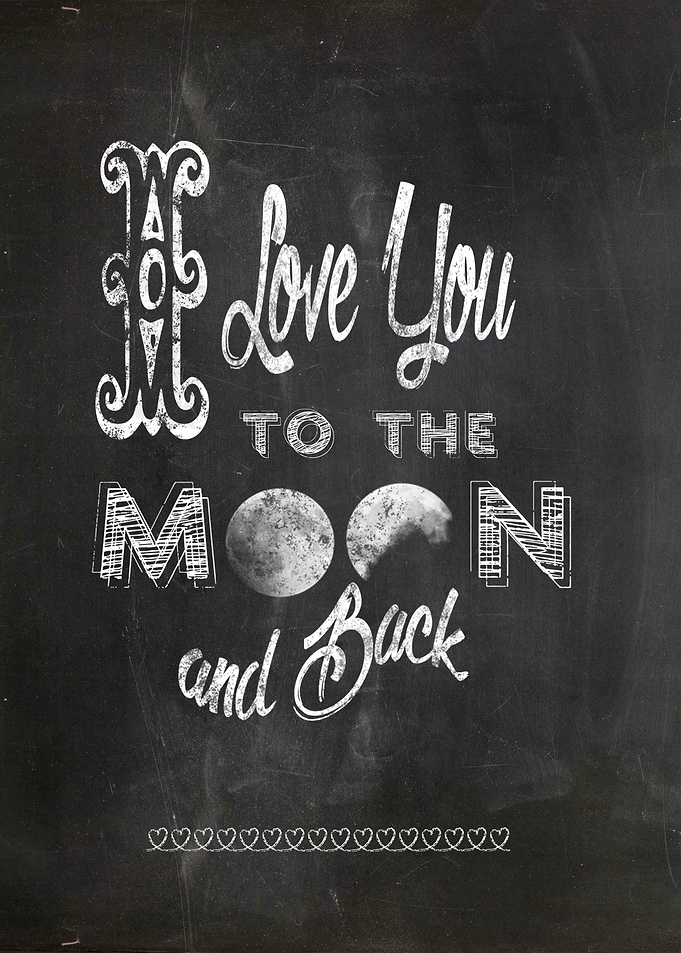 I Love You
TO THE
MOON
and Back